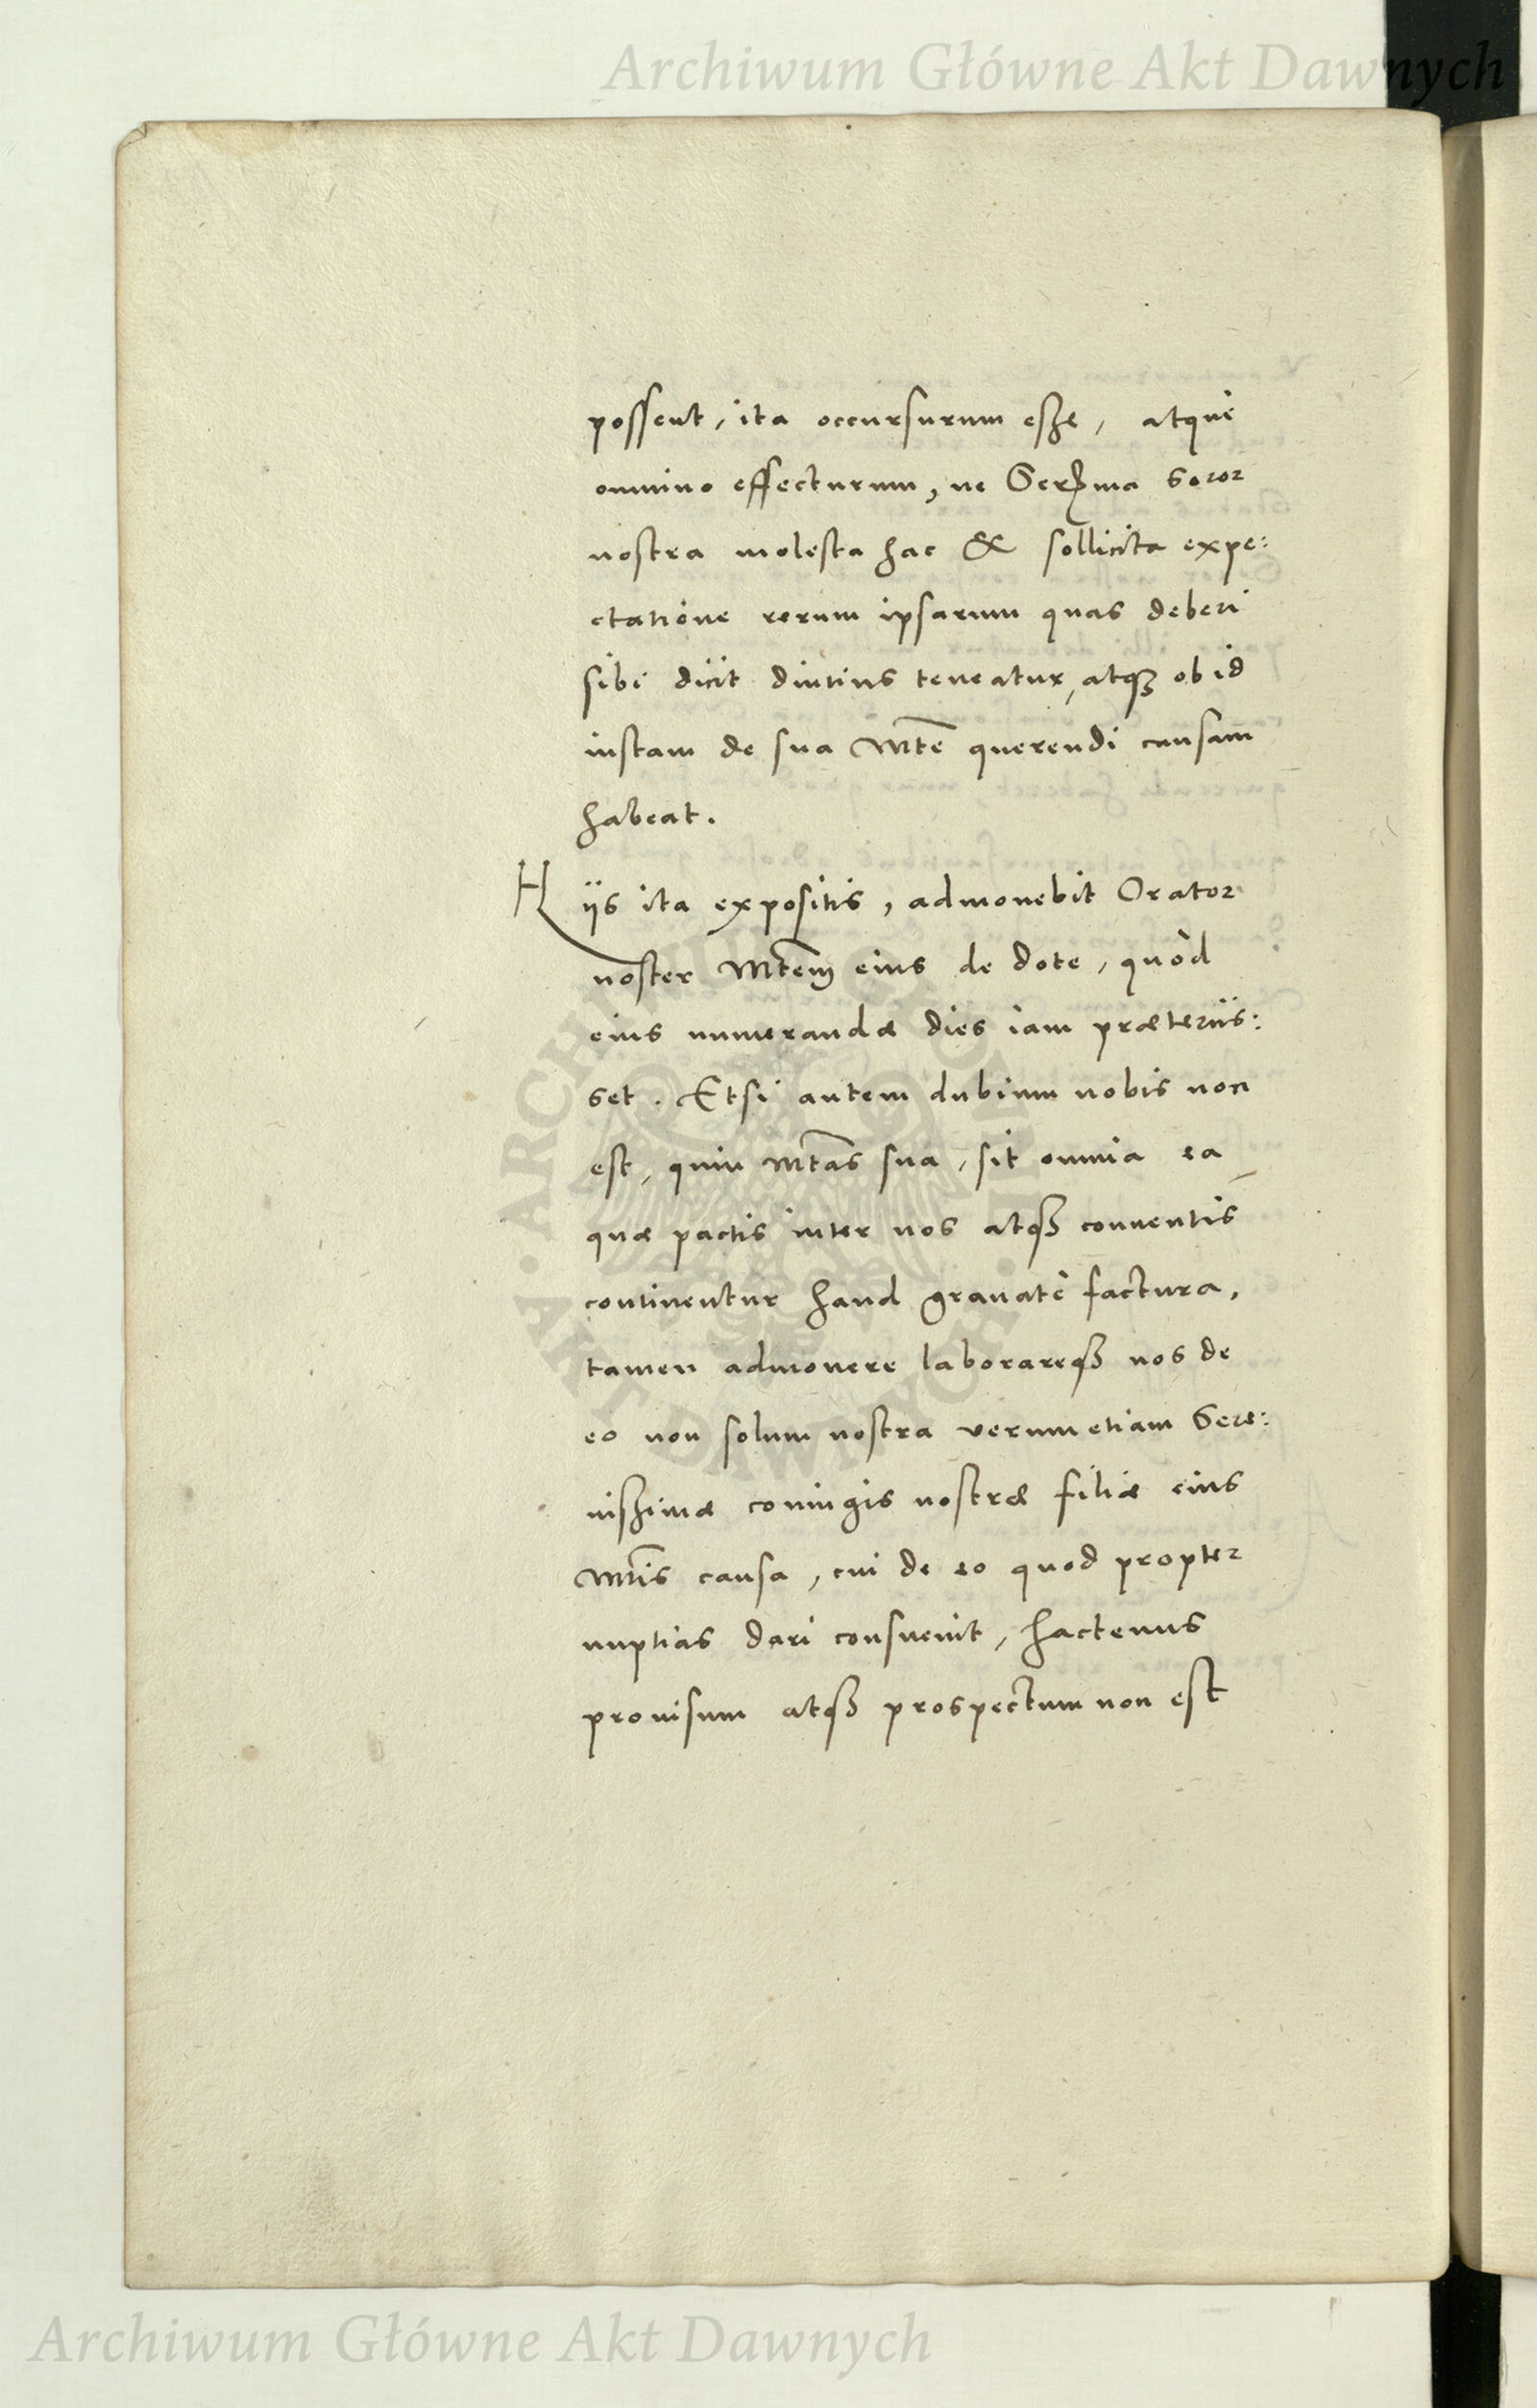 Archiwum Główne Akt Dawnych
possent, ita occursurum esse, atque
omnino effecturum, ne Serma Soror
nostra molesta hac & sollicita expe:
ctatione rerum ipsarum quas deberi
sibi dicit diutius teneatur, atq₃ ob id
iustam de sua Mte querendi causam
habeat.
Hijs ita expositis, admonebit Orator
noster Mtem eius de dote, quòd
eius numerandæ dies iam præteriis:
set. Etsi autem dubium nobis non
est, quin Mtas sua, sit omnia ea
quæ pactis inter nos atq₃ conuentis
continentur haud grauatè factura,
tamen admonere laborareq₃ nos de
eo non solum nostra verumetiam Sere:
nissimæ coniugis nostræ filiæ eius
Mtis causa, cui de eo quod propter
nuptias dari consueuit, hactenus
prouisum atq₃ prospectum non est
ARCHIWUM GŁÓWNE · AKT DAWNYCH ·
Archiwum Główne Akt Dawnych